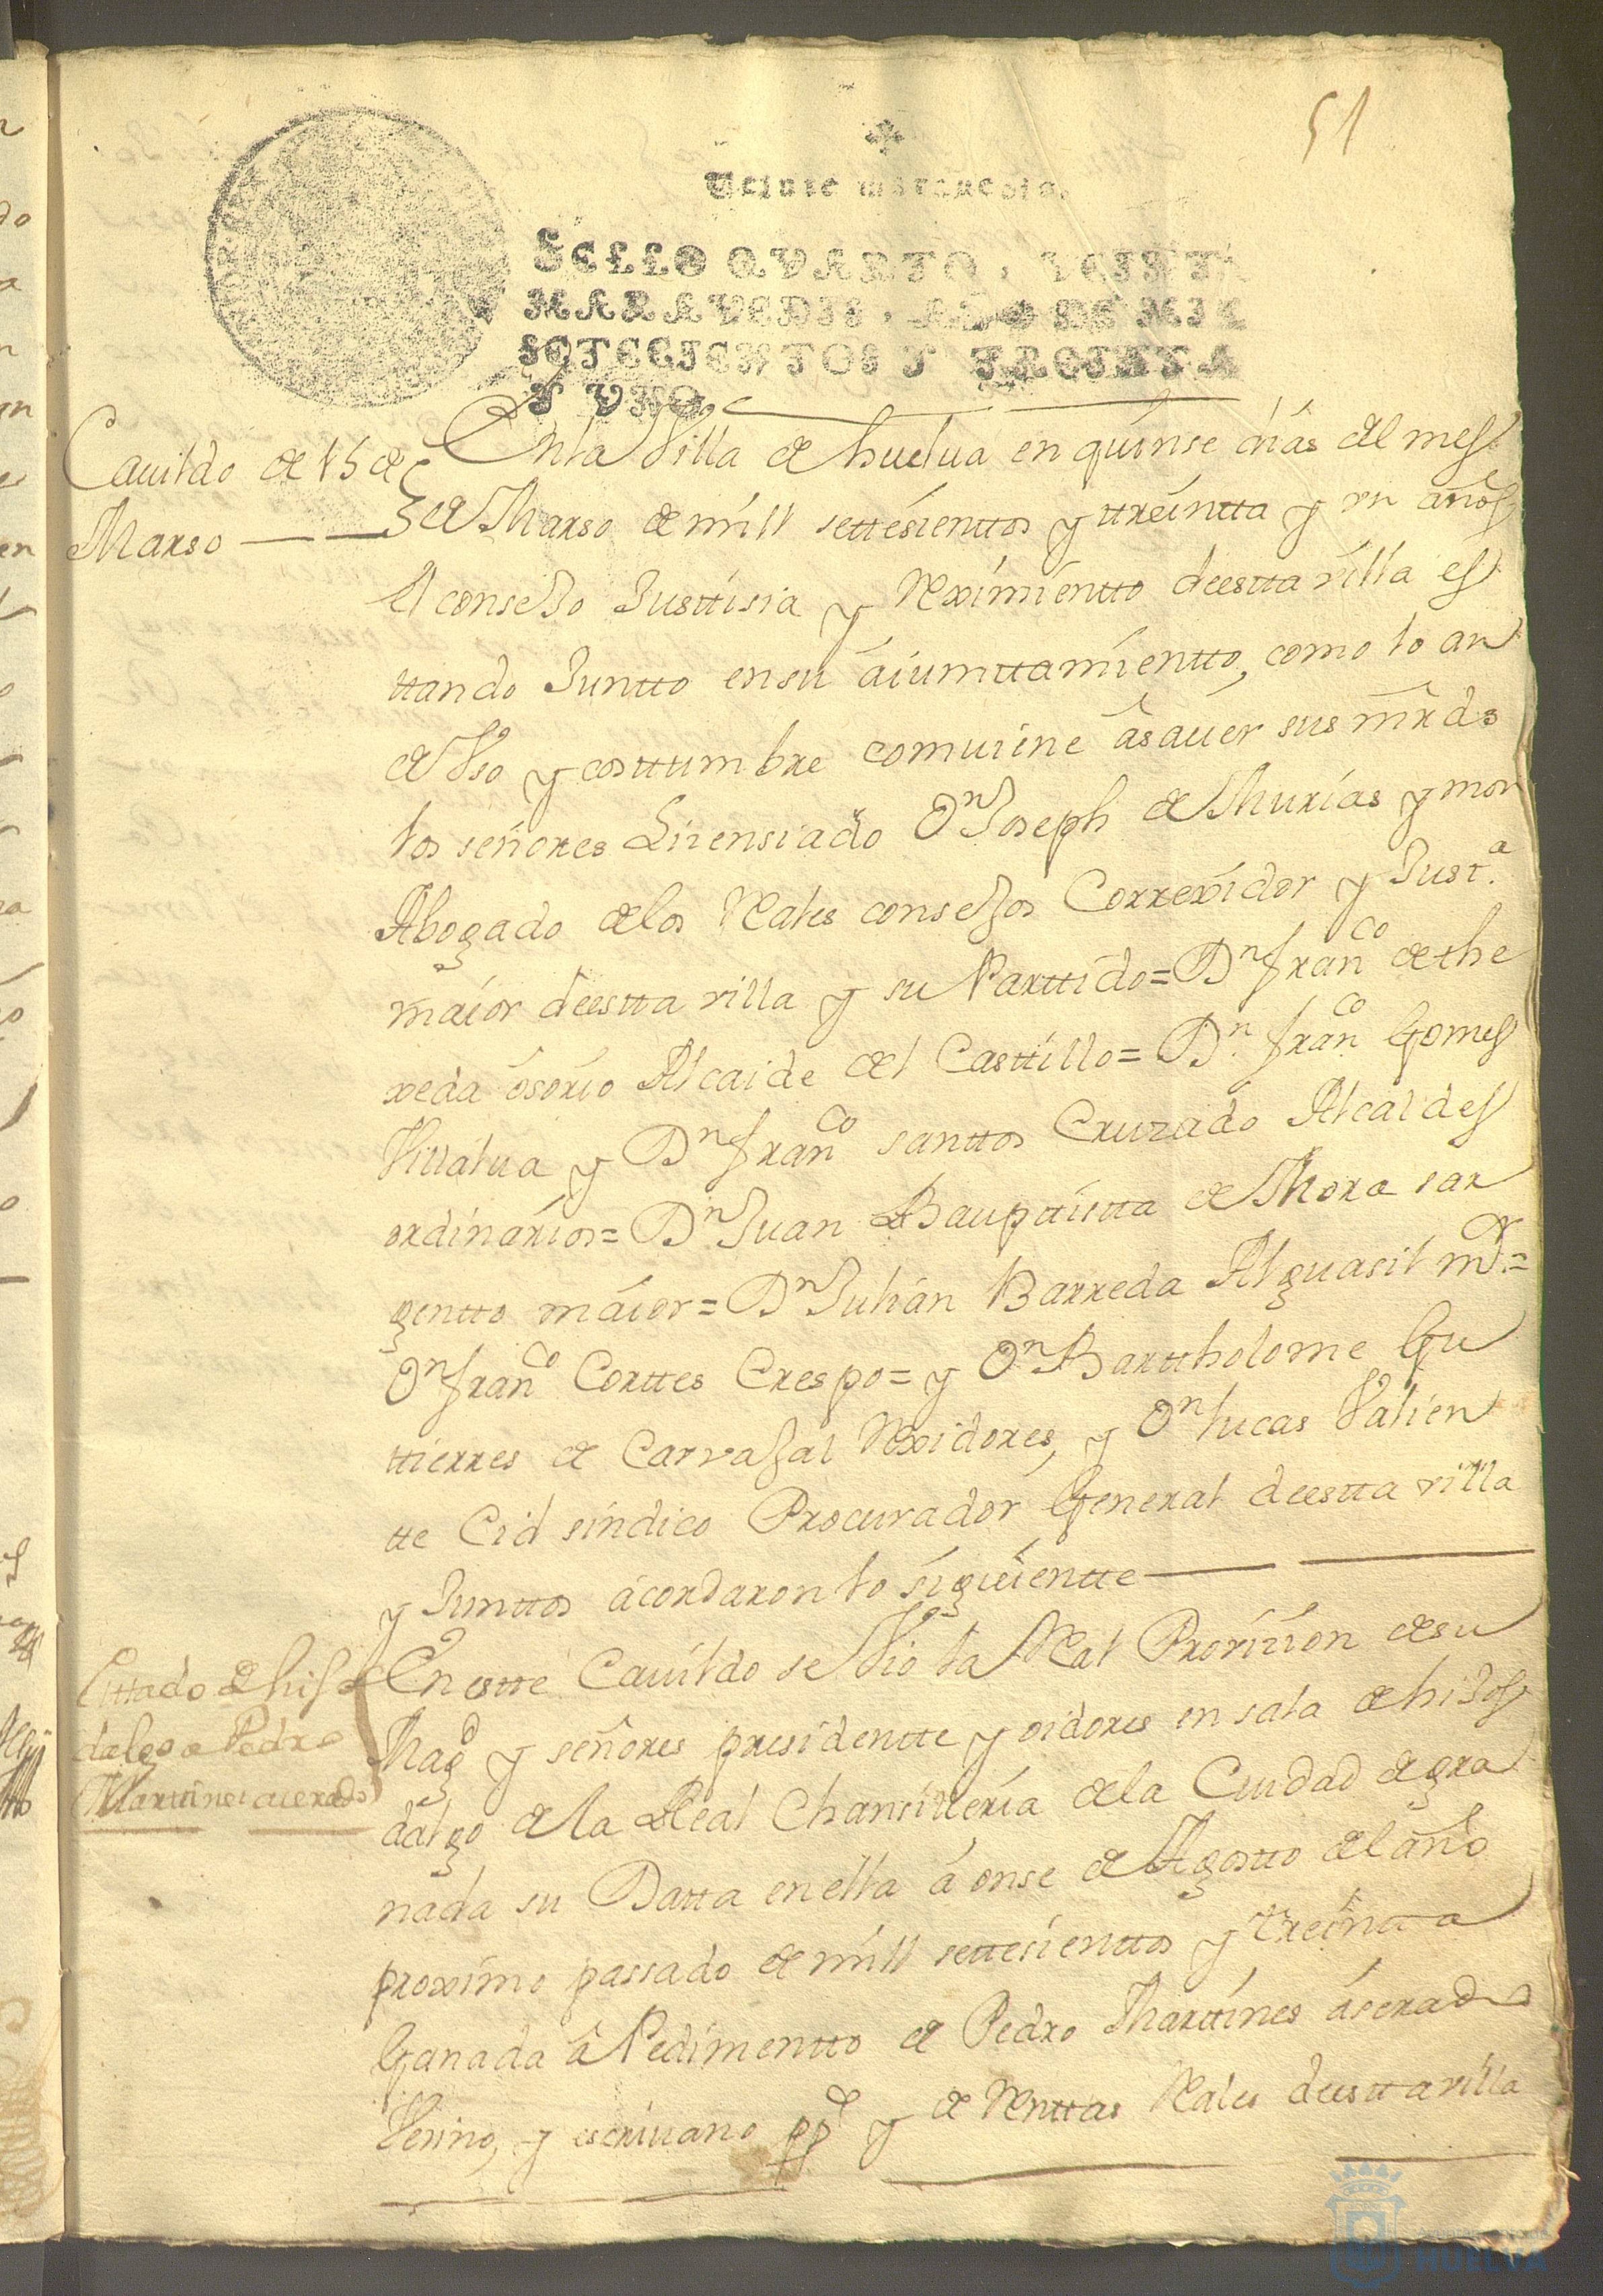 51
Veinte maravedis.
SELLO QVARTO, VEINTE
MARAVEDIS, AÑO DE MIL
SETECIENTOS Y TREINTA
Y VNO.
Cauildo de 15 de
Marso
En la Villa de huelua en quinse dias del mes
de Marso de mill settesienttos y ttreintta y vn años
El conseJo Justtisia y Reximientto deestta villa es
ttando Juntto en su aiumttamientto, como lo an
de Vso y costtumbre comuiene asauer sus mrds
los señores Lisensiado Dn Joseph de Murias y mon
Abogado de los Reales conseJos Correxidor y Justa
maior deestta villa y su Parttido = Dn franco de the
xeda osorio Alcaide del Casttillo = Dn. franco Gomes
Villalua y Dn franco santtos Cruzado Alcaldes
ordinarios = Dn Juan Baupttistta de Mora sar
gentto maior = Dn Julian Barreda Alguasil mr. =
Dn franco Corttes Crespo = y Dn Barttholome Gu
ttierres de CarvaJal Rexidores, y Dn lucas Valien
tte Cid sindico Procurador General deestta villa
y Junttos acordaron lo siguientte
Esttado de hiJos
dalgo a Pedro
Marttines aserado
En estte Cauildo se Vio la Real Provizion de su
Magd y señores presidentte y oidores en sala de hiJos
dalgo de la Real Chansilleria de la Ciudad de gra
nada su Datta en ella a onse de Agostto del año
proximo passado de mill settesienttos y treintta
Ganada a Pedimentto de Pedro Marttines aserado
Vesino, y escriuano ppco y de Renttas Reales deestta villa
HUELVA